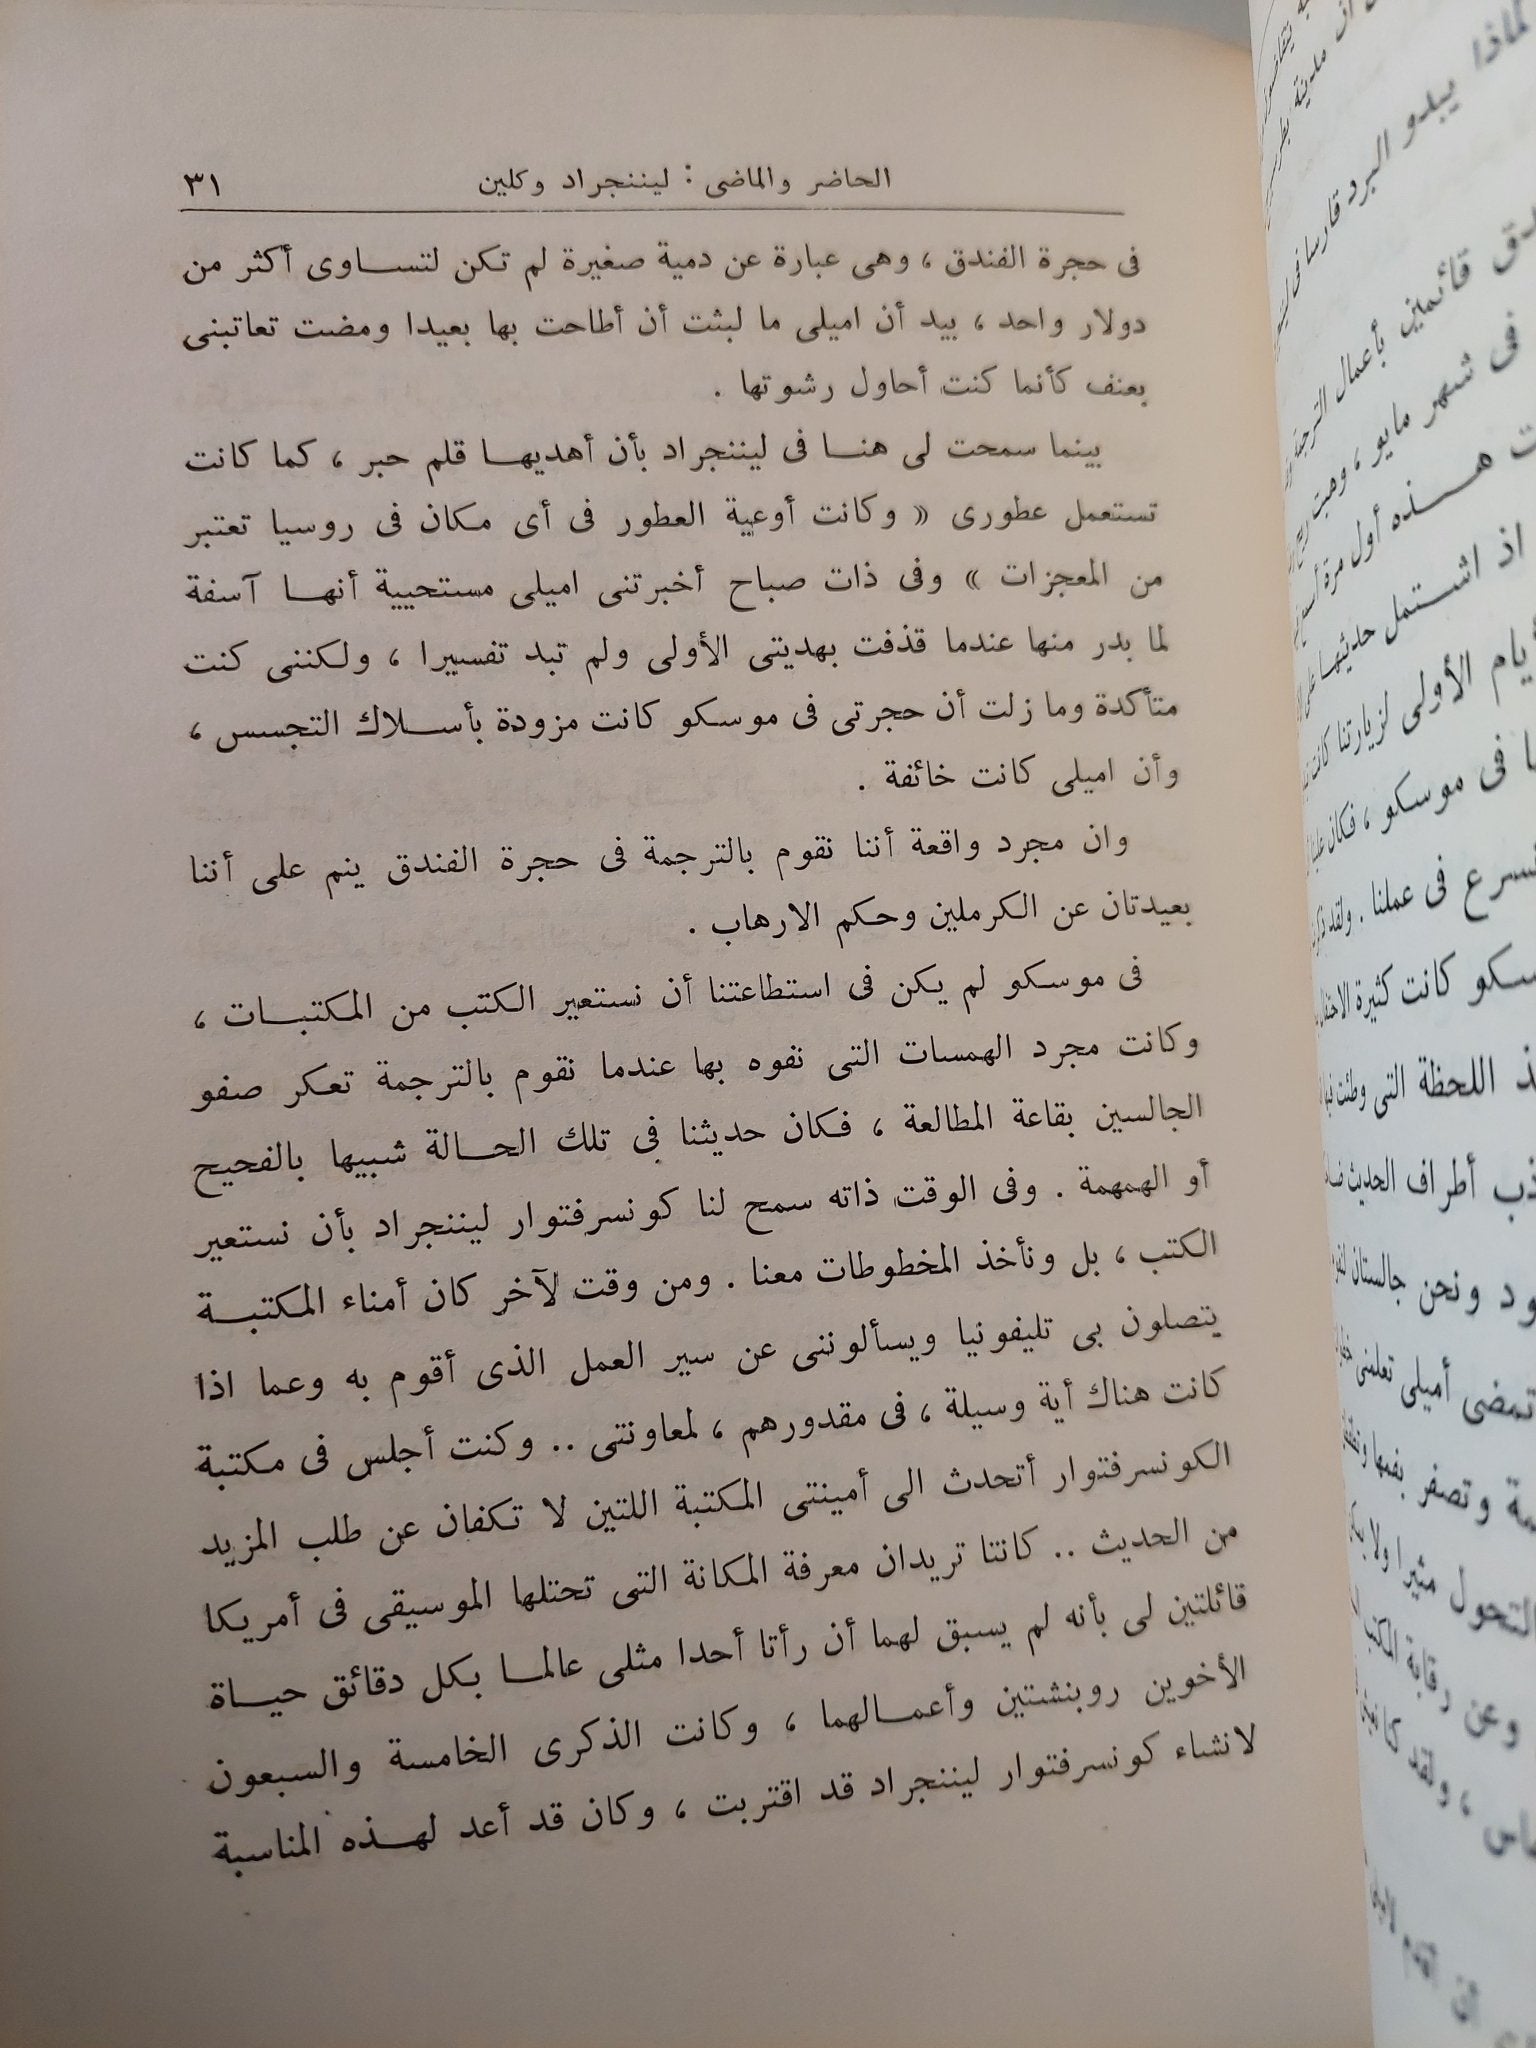 الحاضر والماضى : ليننجراد وكلين ٣١
فى حجرة الفندق ، وهى عبارة عن دمية صغيرة لم تكن لتساوى أكثر من
دولار واحد ، بيد أن اميلى ما لبثت أن أطاحت بها بعيدا ومضت تعاتبنى
بعنف كأنما كنت أحاول رشوتها .
بينما سمحت لى هنا فى ليننجراد بأن أهديها قلم حبر ، كما كانت
تستعمل عطورى « وكانت أوعية العطور فى أى مكان فى روسيا تعتبر
من المعجزات » وفى ذات صباح أخبرتنى اميلى مستحيية أنها آسفة
لما بدر منها عندما قذفت بهديتى الأولى ولم تبد تفسيرا ، ولكننى كنت
متأكدة وما زلت أن حجرتى فى موسكو كانت مزودة بأسلاك التجسس ،
وأن اميلى كانت خائفة .
وان مجرد واقعة أننا نقوم بالترجمة فى حجرة الفندق ينم على أننا
بعيدتان عن الكرملين وحكم الارهاب .
فى موسكو لم يكن فى استطاعتنا أن نستعير الكتب من المكتبات ،
وكانت مجرد الهمسات التى نفوه بها عندما نقوم بالترجمة تعكر صفو
الجالسين بقاعة المطالعة ، فكان حديثنا فى تلك الحالة شبيها بالفحيح
أو الهمهمة . وفى الوقت ذاته سمح لنا كونسرفتوار ليننجراد بأن نستعير
الكتب ، بل ونأخذ المخطوطات معنا . ومن وقت لآخر كان أمناء المكتبة
يتصلون بى تليفونيا ويسألوننى عن سير العمل الذى أقوم به وعما اذا
كانت هناك أية وسيلة ، فى مقدورهم ، لمعاونتى .. وكنت أجلس فى مكتبة
الكونسرفتوار أتحدث الى أمينتى المكتبة اللتين لا تكفان عن طلب المزيد
من الحديث .. كانتا تريدان معرفة المكانة التى تحتلها الموسيقى فى أمريكا
قائلتين لى بأنه لم يسبق لهما أن رأتا أحدا مثلى عالما بكل دقائق حياة
الأخوين روبنشتين وأعمالهما ، وكانت الذكرى الخامسة والسبعون
لانشاء كونسرفتوار ليننجراد قد اقتربت ، وكان قد أعد لهذه المناسبة
لماذا يبدو البرد قارسا فى
قائمين بأعمال الترجمة
فى شهر مايو ، وهبت
هذه أول مرة
اذ اشتمل حديثها
الأولى لزيارتنا كانت
فى موسكو ، فكان
فى عملنا . ولقد
كانت كثيرة
اللحظة التى وطئت
أطراف الحديث
ونحن جالستان
تمضى أميلى تعلمنى
وتصفر بفمها
التحول مثيرا ولا
وعن رقابة